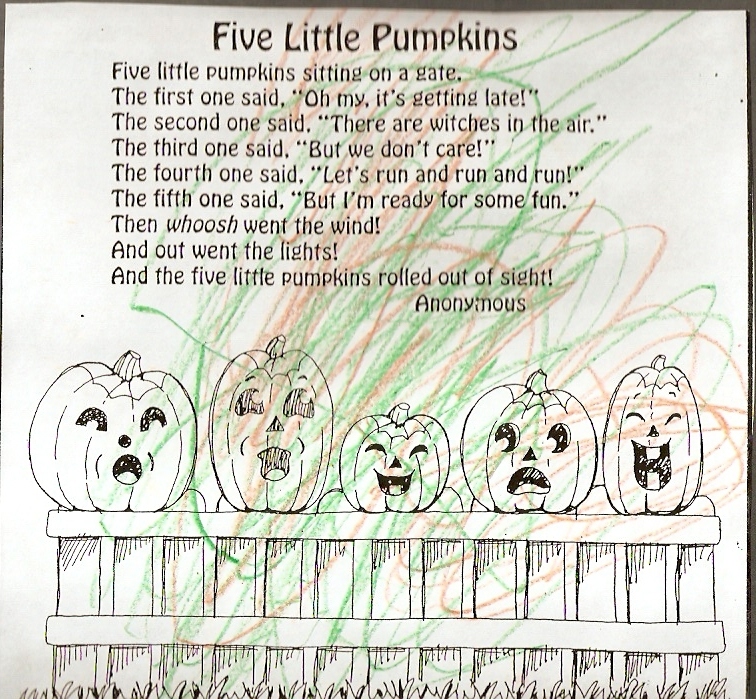 Five Little Pumpkins
Five little pumpkins sitting on a gate.
The first one said, "Oh my, it's getting late!"
The second one said, "There are witches in the air."
The third one said, "But we don't care!"
The fourth one said, "Let's run and run and run!"
The fifth one said, "But I'm ready for some fun."
Then whoosh went the wind!
And out went the lights!
And the five little pumpkins rolled out of sight!
Anonymous